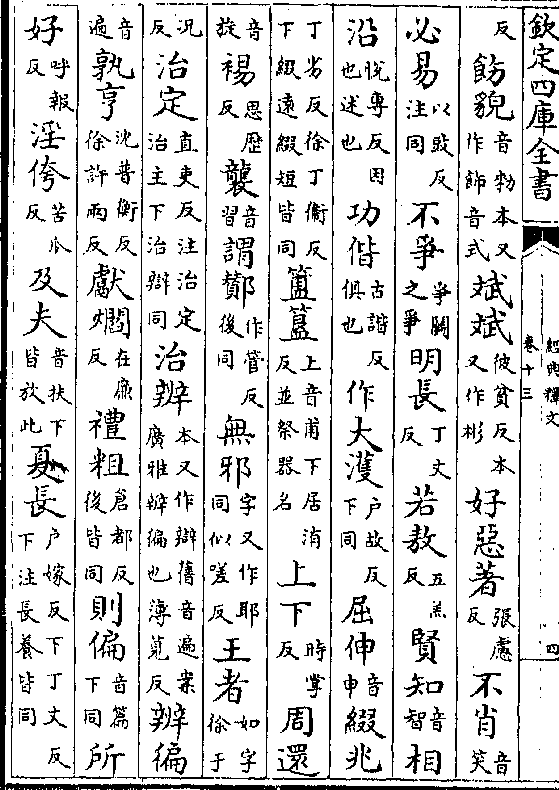 欽定四庫全書
經典釋文
卷十三
四
反飭貌音勑本又作飾音式斌斌彼貧反本又作彬好惡著張慮反不肖音笑
必易以豉反注同不爭爭鬭之爭明長丁丈反若敖五羔反賢知音智相
沿悅專反因也述也功偕古諧反俱也作大濩户故反下同屈伸音申綴兆
丁劣反徐丁衛反下綴遠綴短皆同簠簋上音甫下居洧反並祭器名上下時掌反周還
音旋裼思歷反襲音習謂酇作管反後同無邪字又作耶同似嗟反王者如字徐于
況反治定直吏反注治定治主下治辯同治辨本又作辯舊音遍案廣雅辨徧也薄莧反辨徧
音遍孰亨沈普衡反徐許兩反獻爓在廉反禮粗倉都反後皆同則偏音篇下同所
好呼報反淫侉苦瓜反及夫音扶下皆放此夏長户嫁反下丁丈反下注長養皆同